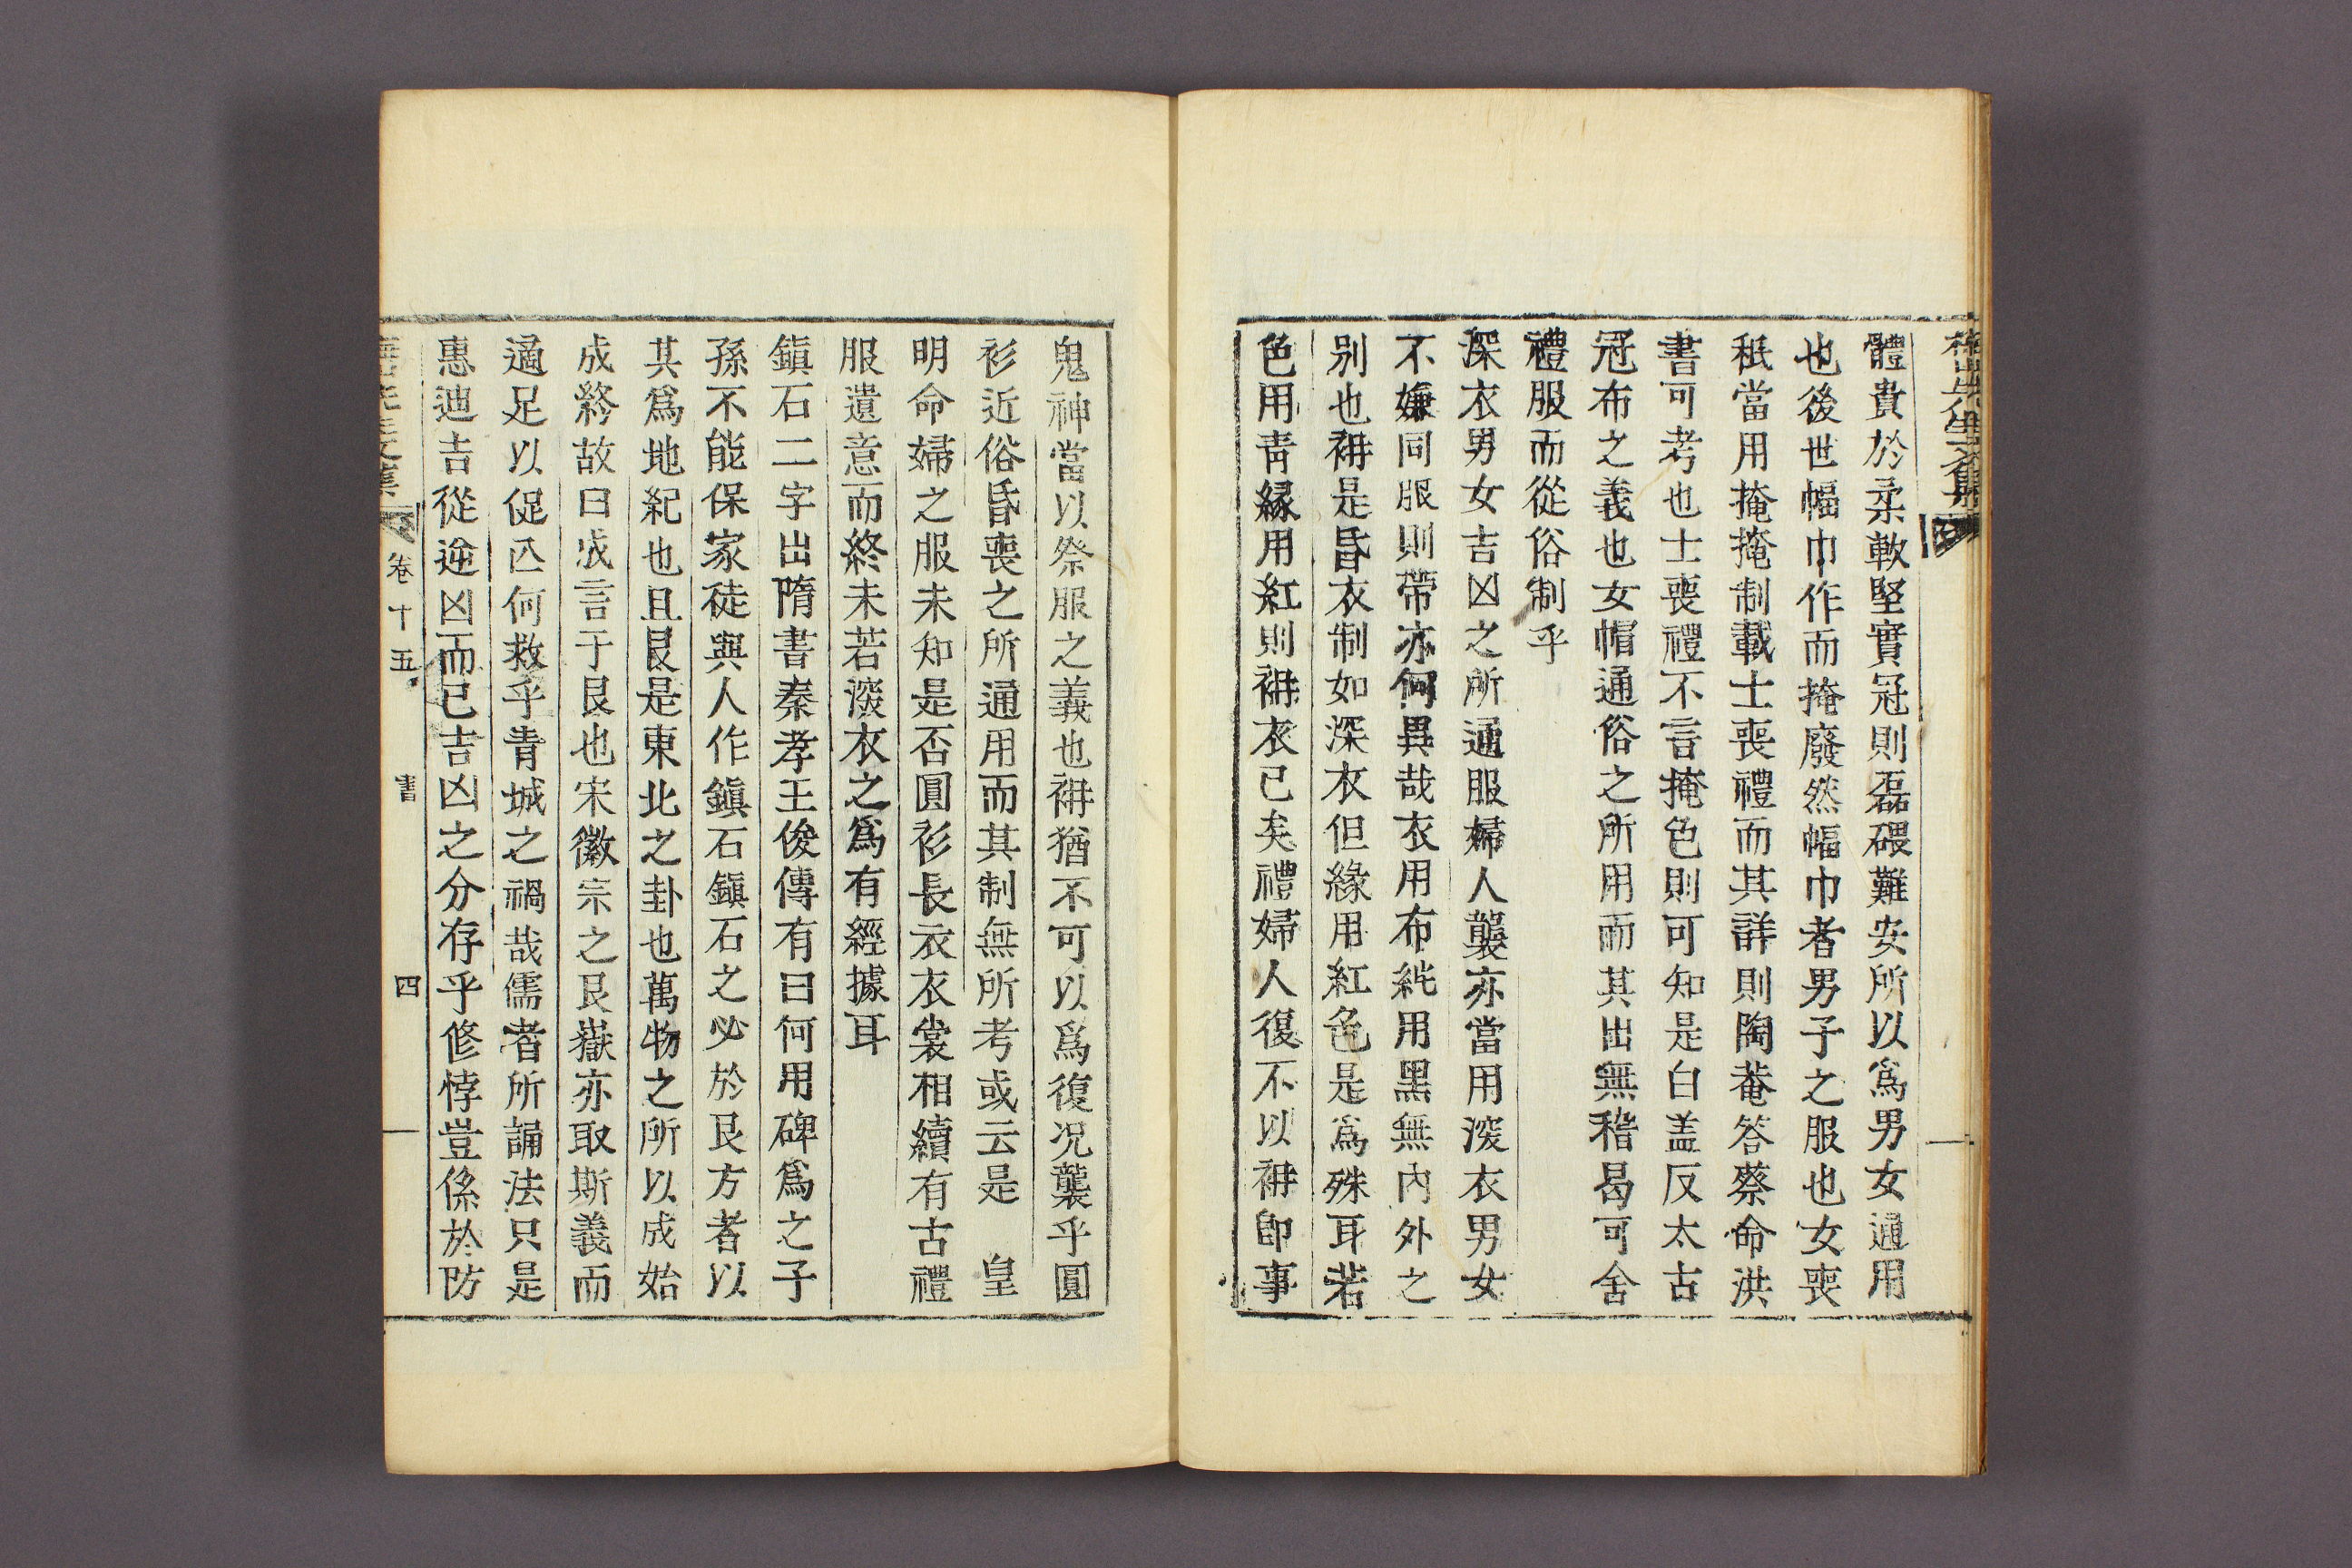 體貴於柔軟堅實冠則磊磈難安所以爲男女通用
也後世幅巾作而掩廢然幅巾者男子之服也女喪
秖當用掩掩制載士喪禮而其詳則陶菴答蔡命洪
書可考也士喪禮不言掩色則可知是白盖反太古
冠布之義也女帽通俗之所用而其出無稽曷可舍
禮服而從俗制乎
深衣男女吉凶之所通服婦人襲亦當用深衣男女
不嫌同服則帶亦何異哉衣用布純用黑無內外之
别也褖是昏衣制如深衣但緣用紅色是爲殊耳若
色用靑緣用紅則褖衣已矣禮婦人復不以褖卽事
鬼神當以祭服之義也褖猶不可以爲復况襲乎圓
衫近俗昏喪之所通用而其制無所考或云是 皇
明命婦之服未知是否圓衫長衣衣裳相續有古禮
服遺意而終未若深衣之爲有經據耳
鎭石二字出隋書秦孝王俊傳有曰何用碑爲之子
孫不能保家徒與人作鎭石鎭石之必於艮方者以
其爲地紀也且艮是東北之卦也萬物之所以成始
成終故曰成言于艮也宋徽宗之艮嶽亦取斯義而
適足以促亾何救乎靑城之禍哉儒者所誦法只是
惠迪吉從逆凶而已吉凶之分存乎修悖豈係於防
卷十五 書 四